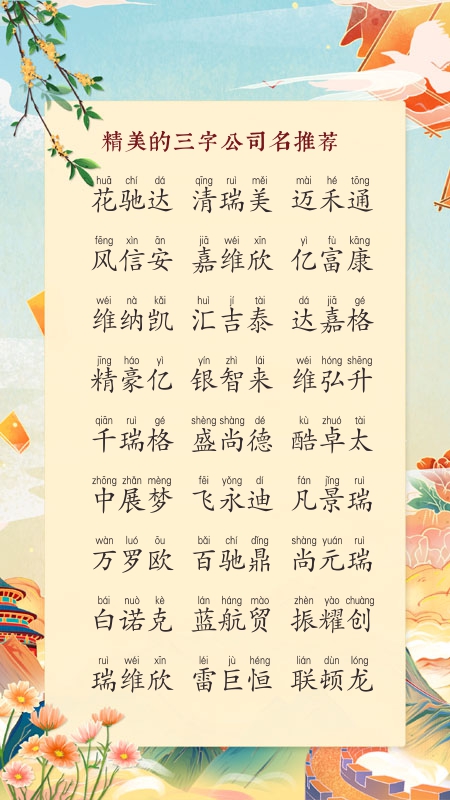 精美的三字公司名推荐
huā chí dá qīng ruì měi mài hé tōng
花驰达 清瑞美 迈禾通
fēng xìn ān jiā wéi xīn yì fù kāng
风信安 嘉维欣 亿富康
wéi nà kǎi huì jí tài dá jiā gé
维纳凯 汇吉泰 达嘉格
jīng háo yì yín zhì lái wéi hóng shēng
精豪亿 银智来 维弘升
qiān ruì gé shèng shàng dé kù zhuó tài
千瑞格 盛尚德 酷卓太
zhōng zhǎn mèng fēi yǒng dí fán jǐng ruì
中展梦 飞永迪 凡景瑞
wàn luó ōu bǎi chí dǐng shàng yuán ruì
万罗欧 百驰鼎 尚元瑞
bái nuò kè lán háng mào zhèn yào chuàng
白诺克 蓝航贸 振耀创
ruì wéi xīn léi jù héng lián dùn lóng
瑞维欣 雷巨恒 联顿龙